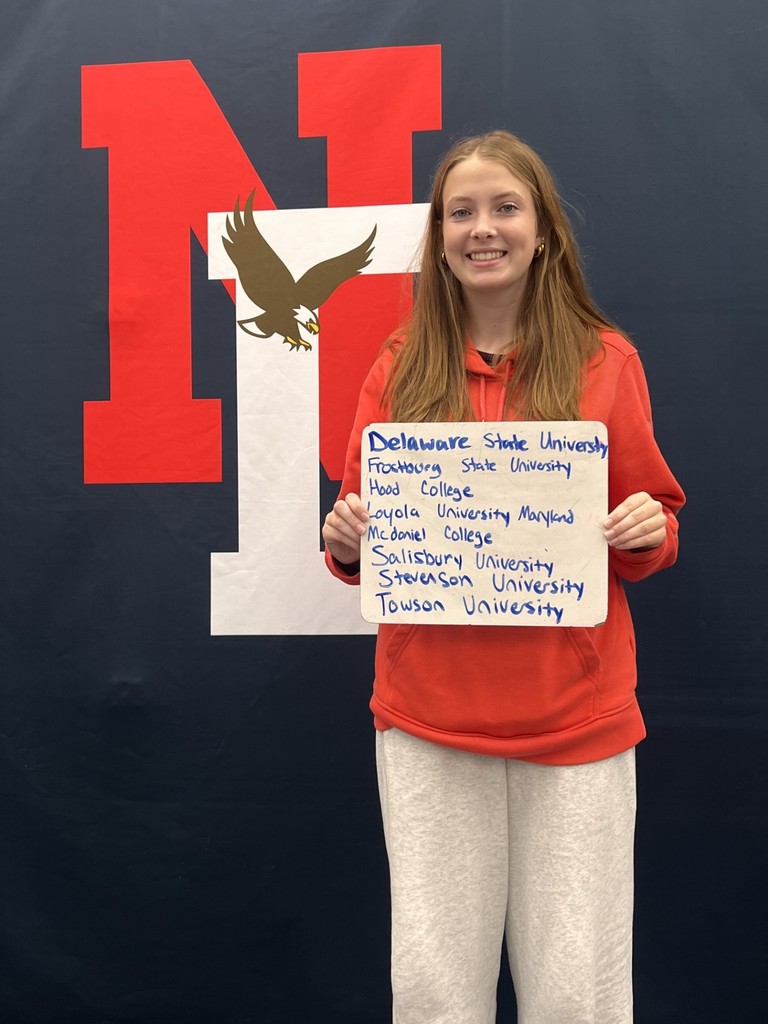 NT
Delaware State University
Frostburg State University
Hood College
Loyola University Maryland
Mcdaniel College
Salisbury University
Stevenson University
Towson University